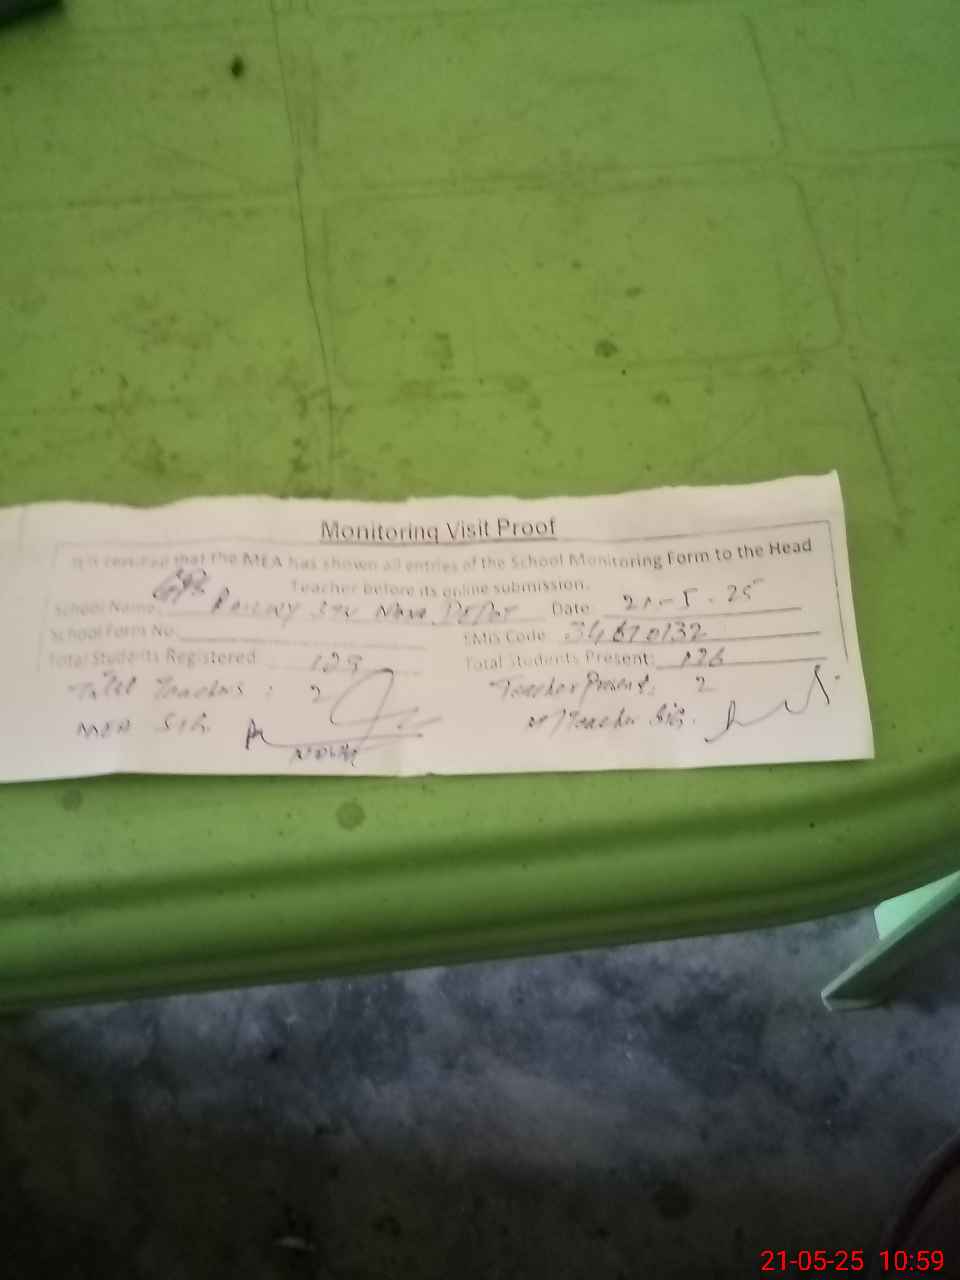 Monitoring Visit Proof
It is certified that the MEA has shown all entries of the School Monitoring Form to the Head
Teacher before its online submission.
School Name: GPS Railway Stn Nova Date: 21-5-25
School Form No. EMIS Code 34610132
Total Students Registered 129 Total Students Present: 126
Total Teachers: 2 Teacher Present: 2
MEA SIG. H/Teacher SIG.
21-05-25 10:59